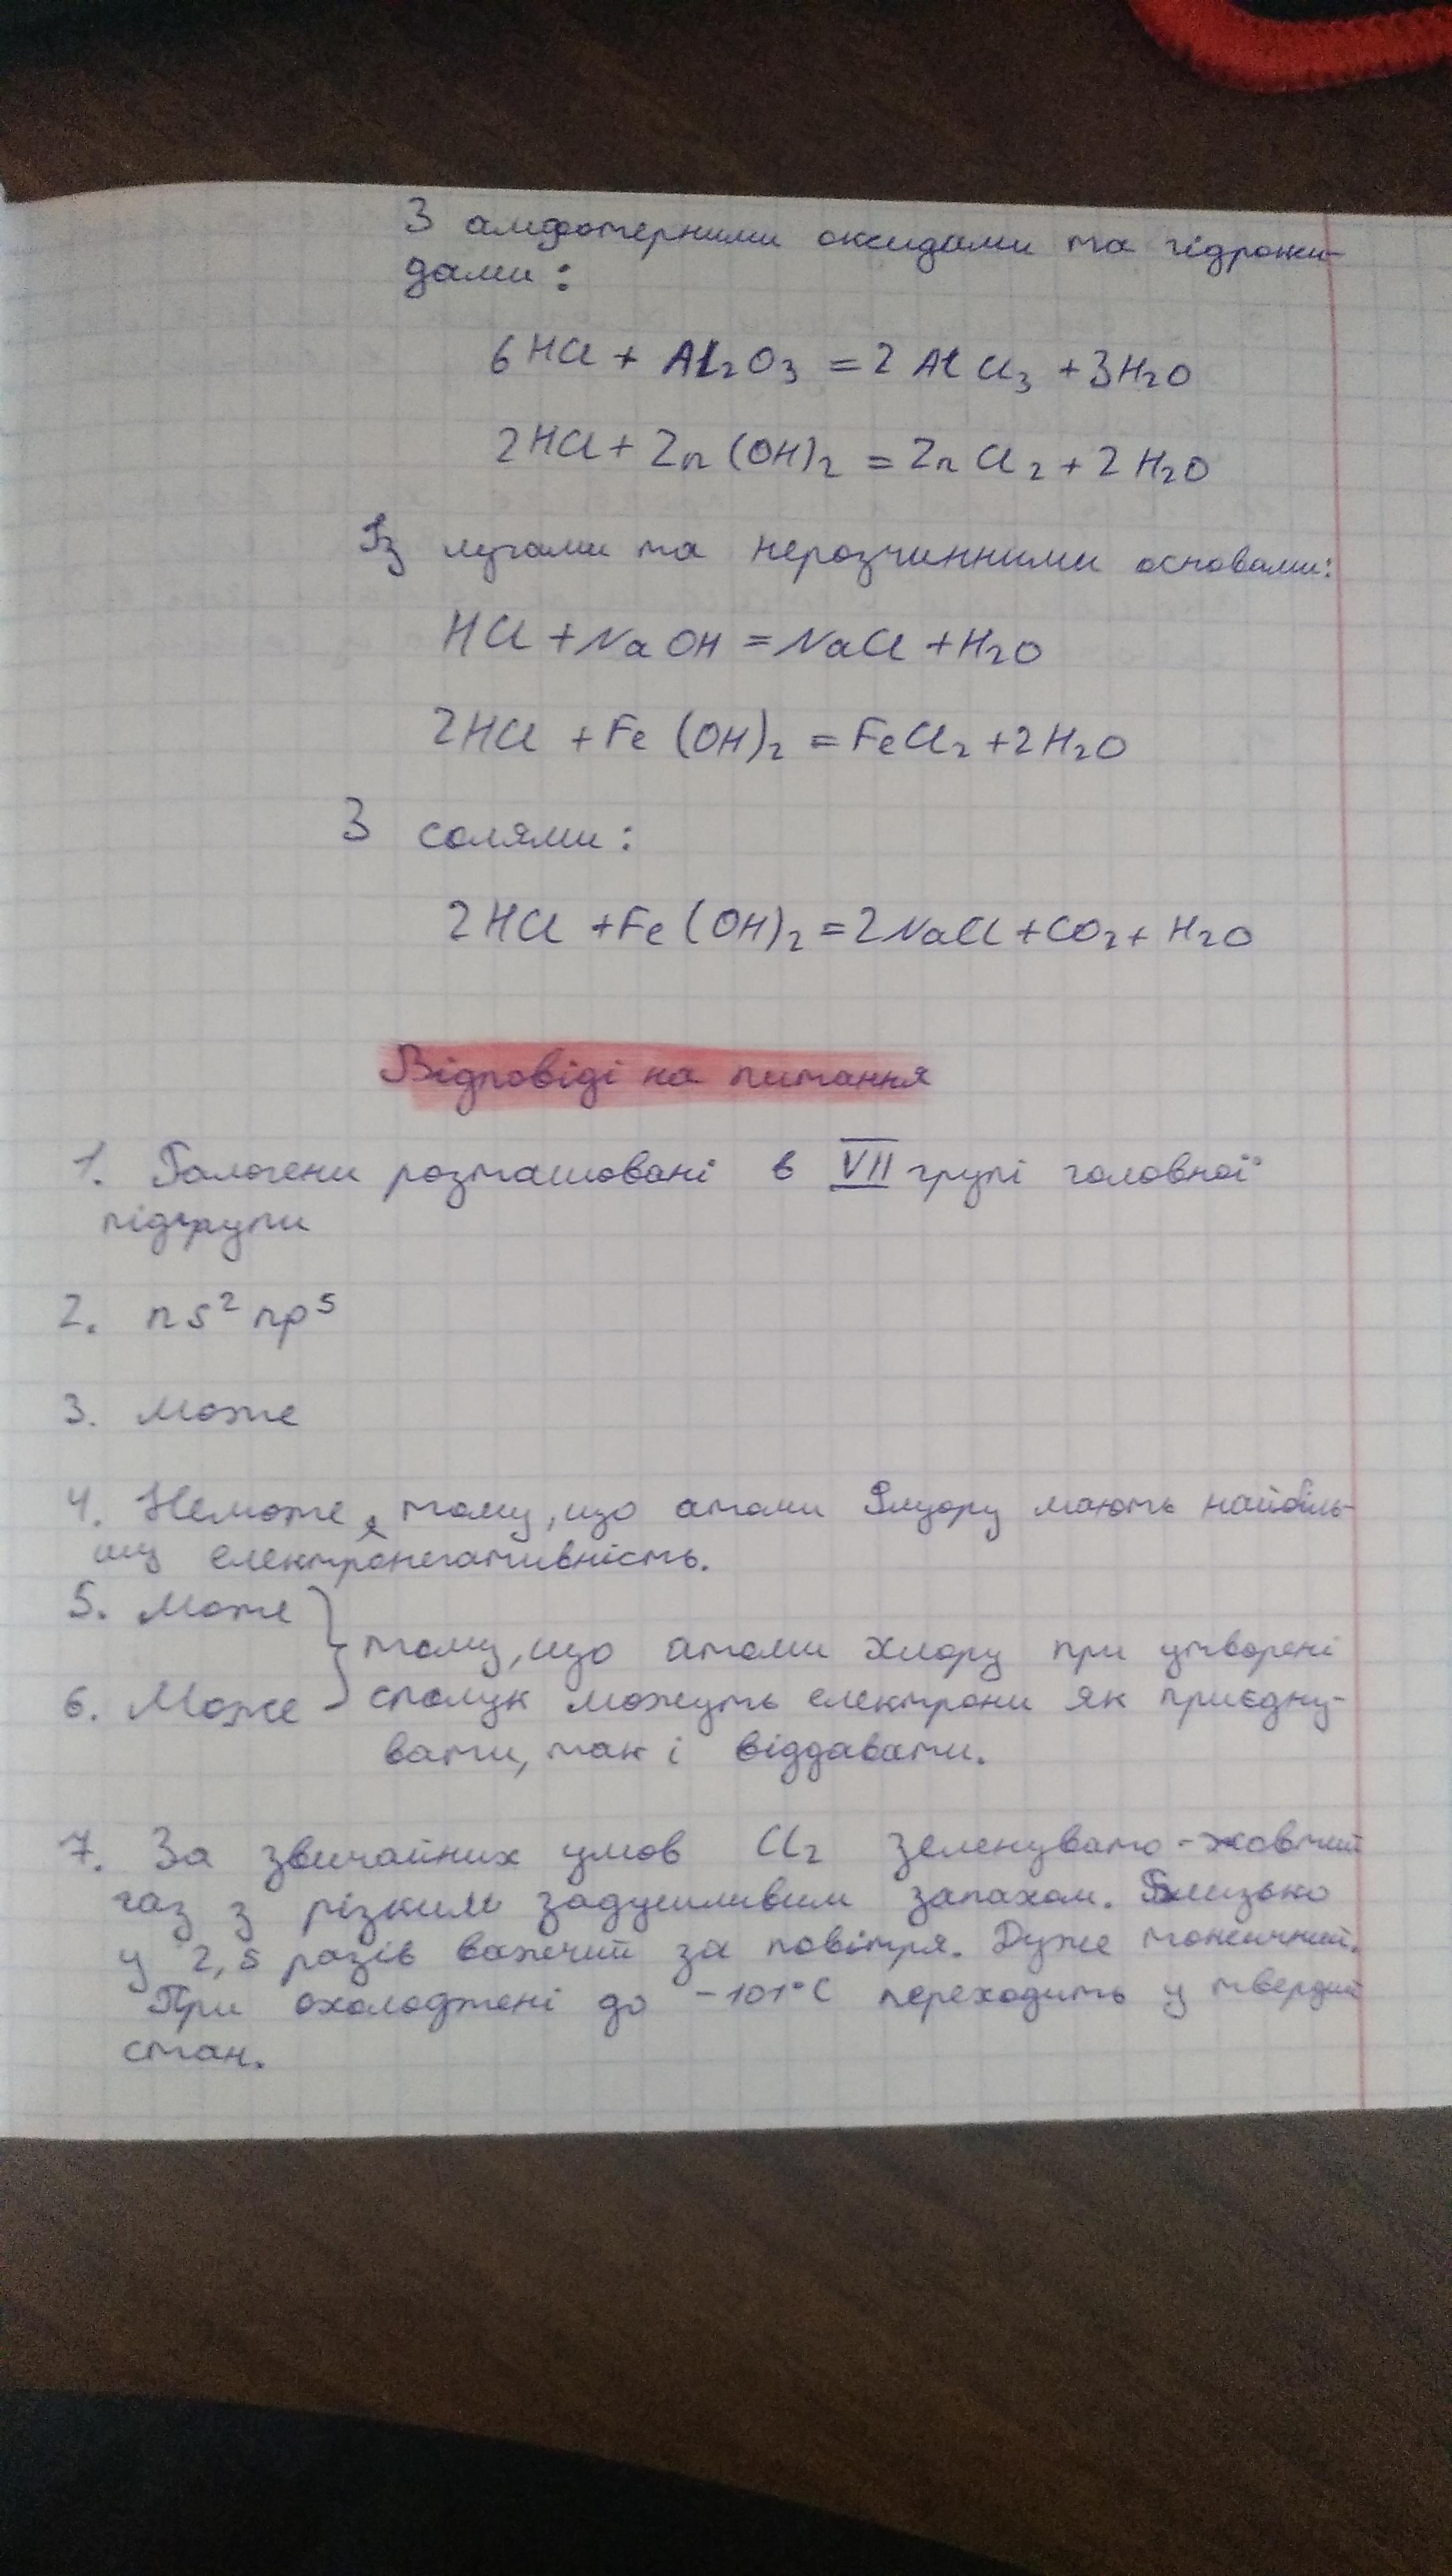 З амфотерними оксидами та гідрокси-
дами:
6HCl + Al₂O₃ = 2AlCl₃ + 3H₂O
2HCl + Zn(OH)₂ = ZnCl₂ + 2H₂O
Із лугами та нерозчинними основами:
HCl + NaOH = NaCl + H₂O
2HCl + Fe(OH)₂ = FeCl₂ + 2H₂O
З солями:
2HCl + Fe(OH)₂ = 2NaCl + CO₂ + H₂O
Відповіді на питання
1. Галогени розташовані в VII групі головної
підгрупи
2. ns² np⁵
3. Може
4. Неможе, тому, що атоми Флуору мають найбіль-
шу електронегативність.
5. Може
тому, що атоми хлору при утворені
6. Може сполук можуть електрони як приєдну-
вати, так і віддавати.
7. За звичайних умов Cl₂ зеленувато-жовтий
газ з різким задушливим запахом. Близько
у 2,5 разів важчий за повітря. Дуже токсичний.
При охолоджені до -101°C переходить у твердий
стан.